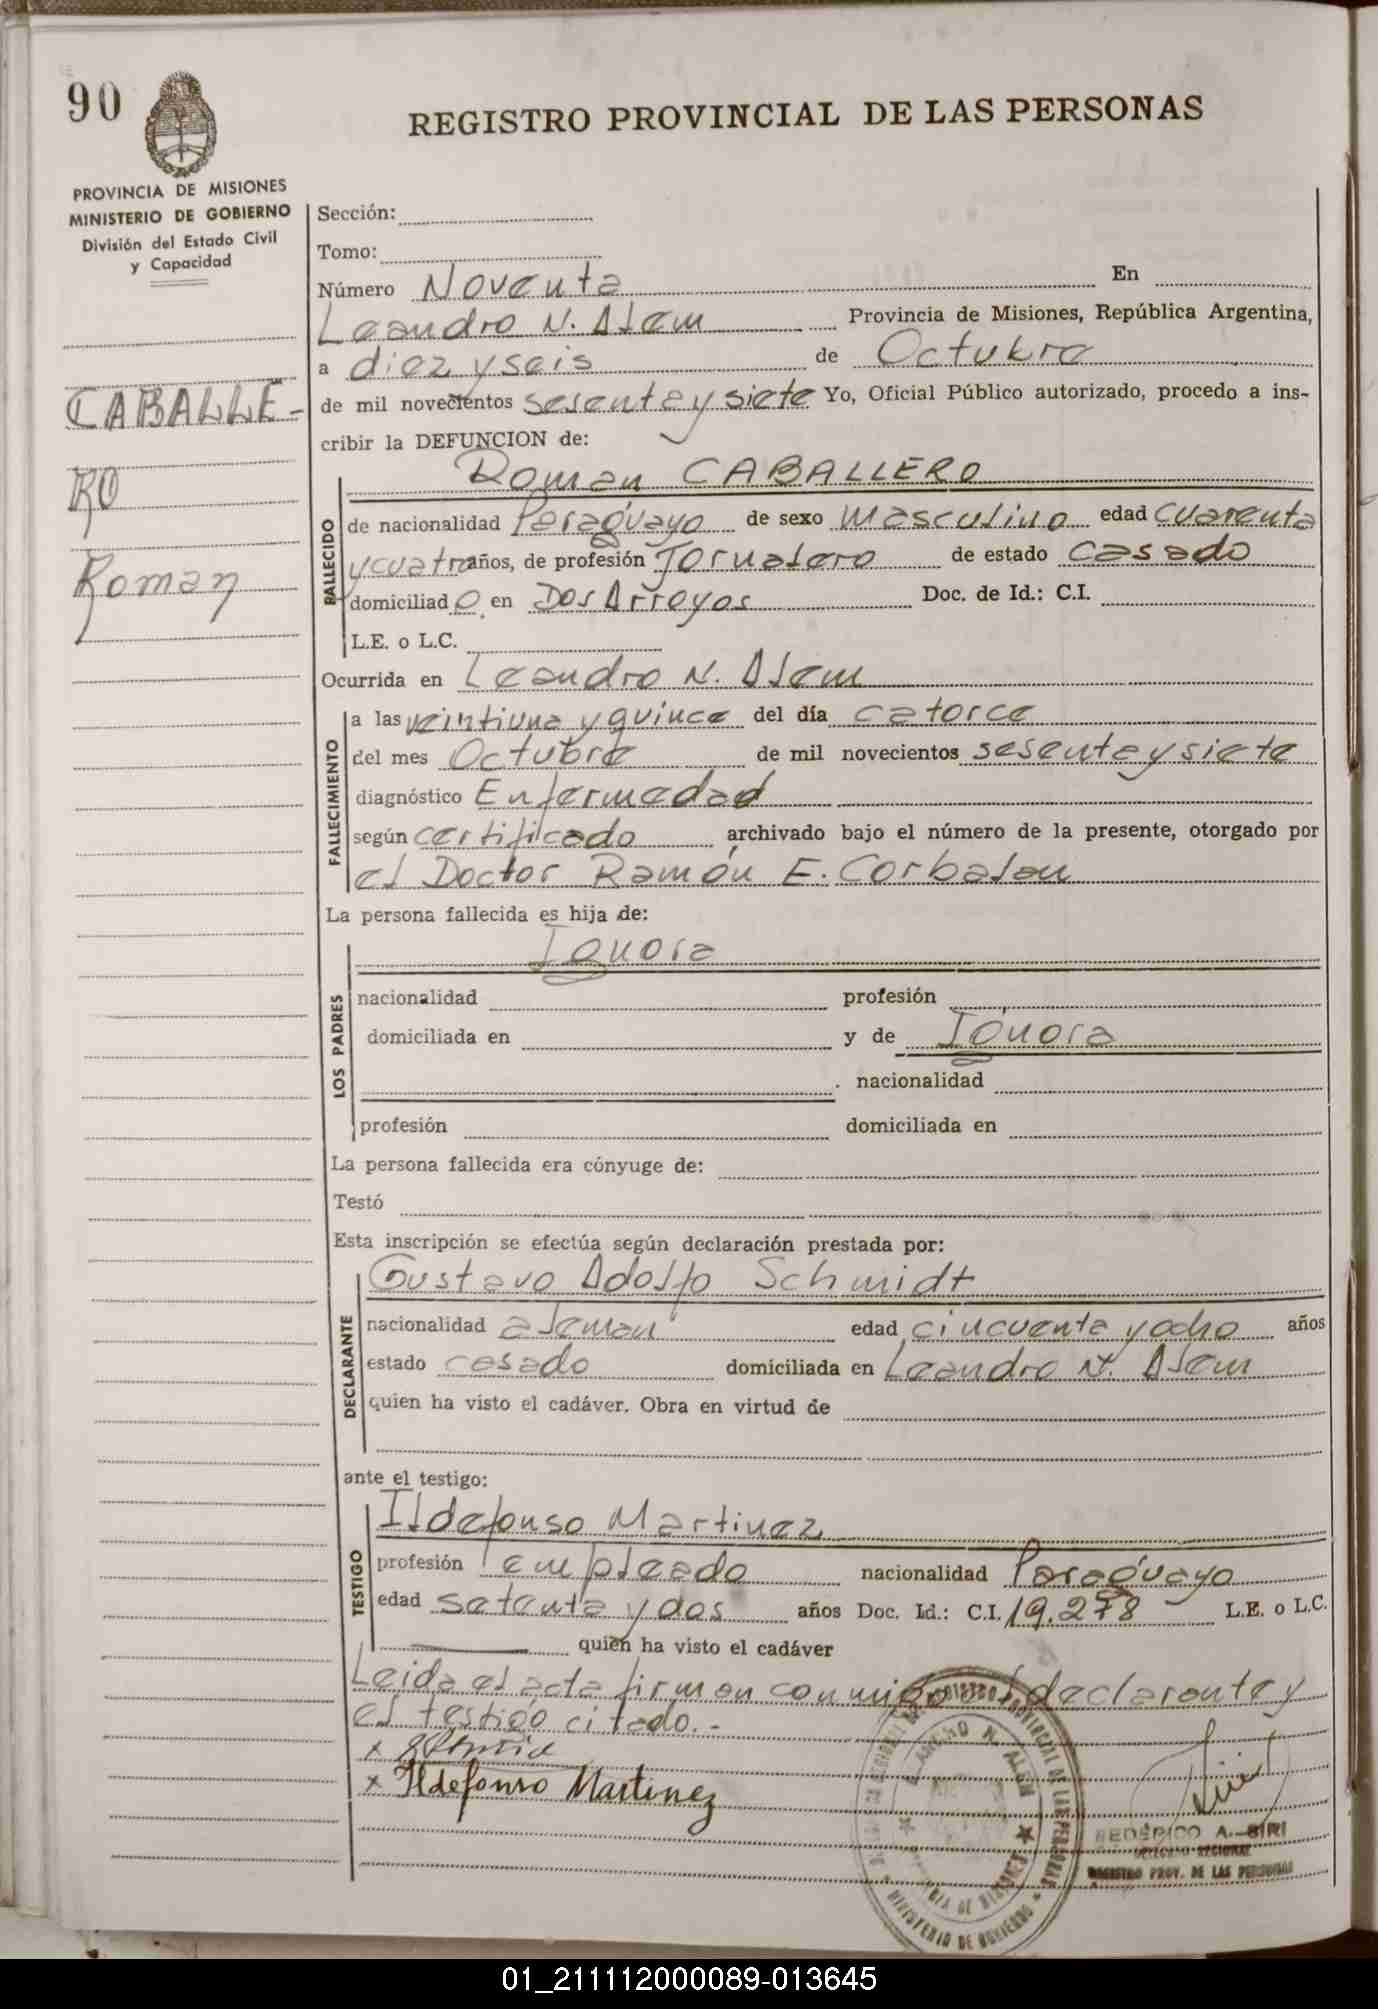 90
REGISTRO PROVINCIAL DE LAS PERSONAS
PROVINCIA DE MISIONES
MINISTERIO DE GOBIERNO
División del Estado Civil
y Capacidad
CABALLE-
RO
Roman
Sección:
Tomo:
Número Noventa En
Leandro N. Alem Provincia de Misiones, República Argentina,
a diez y seis de Octubre
de mil novecientos sesenta y siete Yo, Oficial Público autorizado, procedo a ins-
cribir la DEFUNCION de:
Román CABALLERO
FALLECIDO
de nacionalidad Paraguayo de sexo masculino edad cuarenta
y cuatro años, de profesión Jornalero de estado casado
domiciliado en Dos Arroyos Doc. de Id.: C.I.
L.E. o L.C.
Ocurrida en Leandro N. Alem
FALLECIMIENTO
a las veintiuna y quince del día catorce
del mes Octubre de mil novecientos sesenta y siete
diagnóstico Enfermedad
según certificado archivado bajo el número de la presente, otorgado por
el Doctor Ramón E. Corbalan
La persona fallecida es hija de:
Ignora
LOS PADRES
nacionalidad profesión
domiciliada en y de Ignora
nacionalidad
profesión domiciliada en
La persona fallecida era cónyuge de:
Testó
Esta inscripción se efectúa según declaración prestada por:
Gustavo Adolfo Schmidt
DECLARANTE
nacionalidad aleman edad cincuenta y ocho años
estado casado domiciliada en Leandro N. Alem
quien ha visto el cadáver. Obra en virtud de
ante el testigo:
Ildefonso Martinez
TESTIGO
profesión empleado nacionalidad Paraguayo
edad setenta y dos años Doc. Id.: C.I. 19.278 L.E. o L.C.
quien ha visto el cadáver
Leida el acta firman conmigo el declarante y
el testigo citado.-
x
x Ildefonso Martinez
LEANDRO N. ALEM
MINISTERIO DE GOBIERNO
FEDERICO A. BIRI
DELEGADO REGIONAL
REGISTRO PROV. DE LAS PERSONAS
01_211112000089-013645